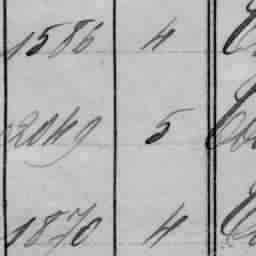 1586 4
2049 5
1870 4